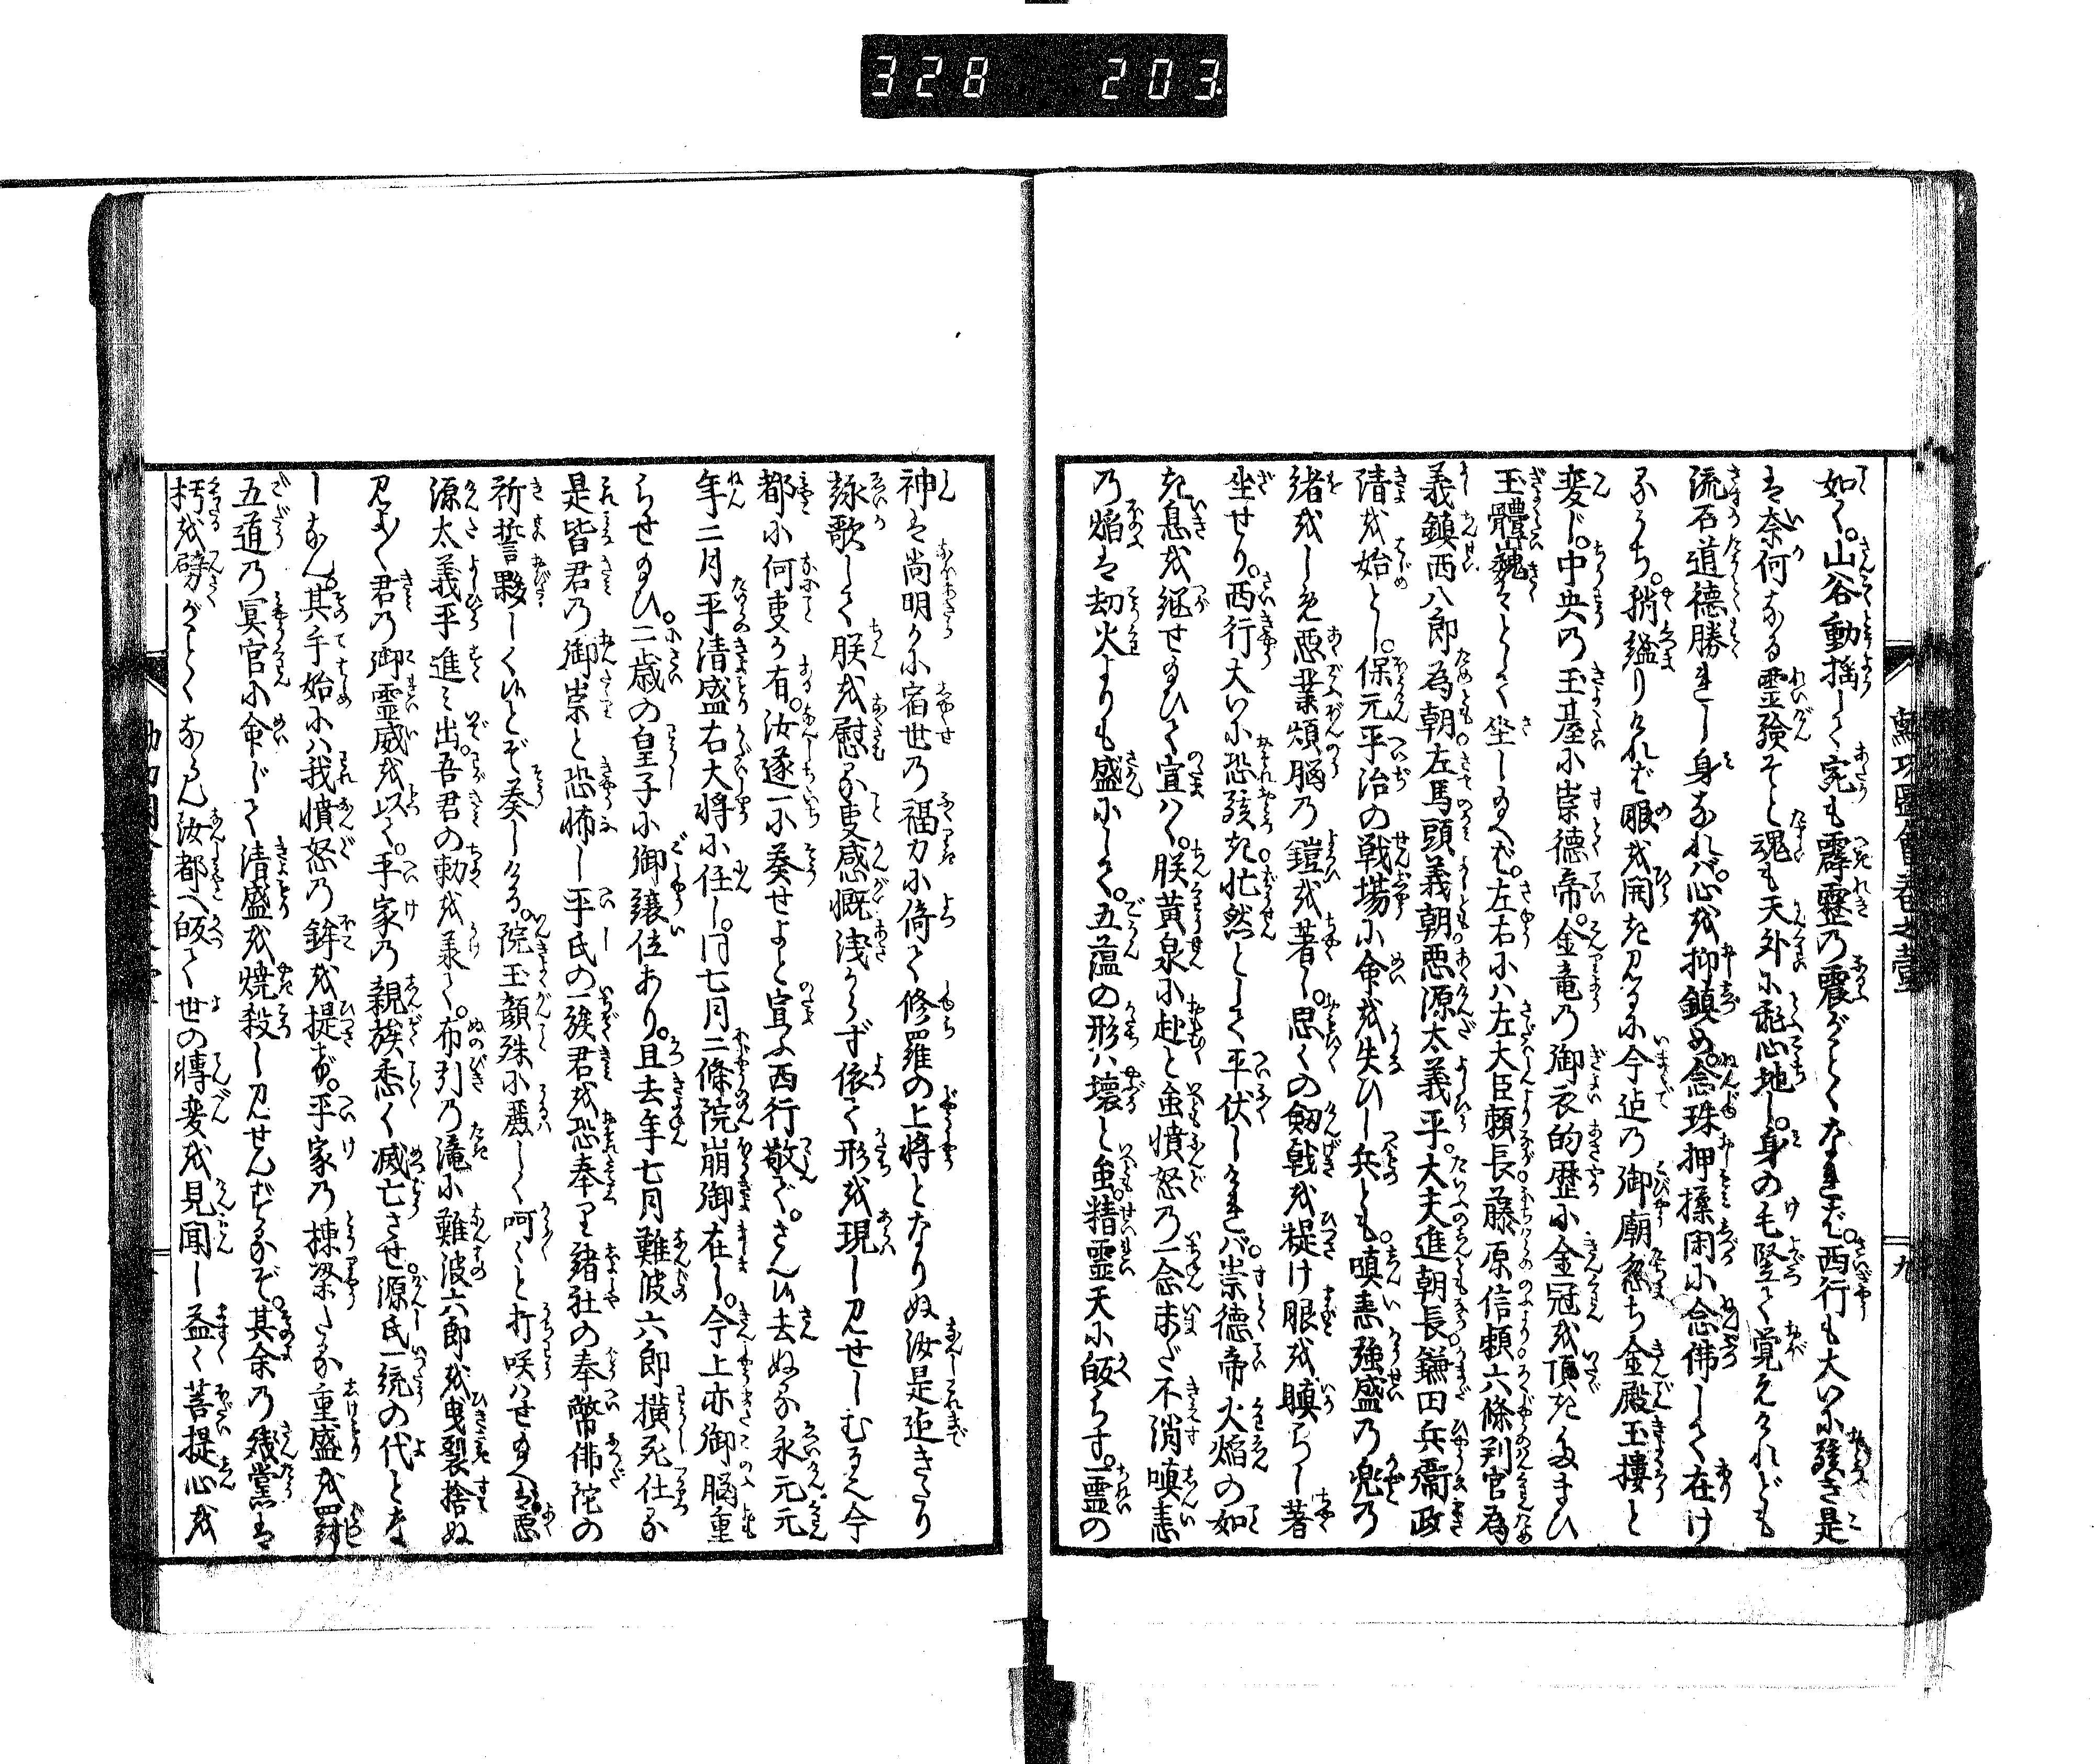 328 203
如く。山谷動揺して宛も霹靂の震がごとくなれば。西行も大いに駭き是
は奈何なる霊験ぞと魂も天外に飛心地し。身の毛竪て覚えけれども
流石道徳勝れし身なれバ。心を抑鎮め。念珠押揉閑に念佛して在け
るうち。稍縊りけれバ眼を開き見るに今迄の御廟忽ち金殿玉摟と
変じ。中央の玉座に崇徳帝。金竜の御衣的歴に金冠を頂きたまひ
玉體巍々として坐し給へば。左右にハ左大臣頼長。藤原信頼。六條判官為
義鎮西八郎為朝。左馬頭義朝。悪源太義平。大夫進朝長。鎌田兵衞政
清を始とし。保元平治の戦場に命を失ひし兵とも。嗔恚強盛の兜の
緒をしめ悪業煩脳の鎧を着し。思々の劔戟を提け眼を瞋らし著
坐せり。西行大いに恐駭き。忙然として平伏しければ。崇徳帝火焔の如
き息を継せ給ひて宣ハく。朕黄泉に赴と雖憤怒の一念未だ不消嗔恚
の焔は劫火よりも盛にして。五蘊の形ハ壊と雖精霊天に皈らす。一霊の
神は尚明かに宿世の福力に倚て修羅の上将となりぬ汝是迄きたり
詠歌して朕を慰る事感慨浅からず依て形を現し見せしむるぞ今
都に何事か有。汝逐一に奏せよと宣ふ西行敬で。さん候去ぬる永元元
年二月平清盛右大将に任し。同七月二條院崩御在し。今上亦御脳重
らせ給ひ。二歳の皇子に御讓位あり。且去年七月難波六郎横死仕る
是皆君の御祟と恐怖し平氏の一族君を恐奉り緒社の奉幣佛陀の
祈誓夥しく候とぞ奏しける。院玉顔殊に麗しく呵々と打咲ハせ給へば悪
源太義平進ミ出。吾君の勅を承て。布引の滝に難波六郎を曳裂捨ぬ
見よ〱君の御霊威を以て。平家の親族悉く滅亡させ。源氏一統の代とな
しなん。其手始にハ我憤怒の鉾を提げ。平家の棟梁たる重盛を罰
五道の冥官に命じて清盛を焼殺し見せんずるぞ。其余の残黨は
朽を劈がごとくならん汝都へ皈て世の轉変を見聞し益〱菩提心を
九